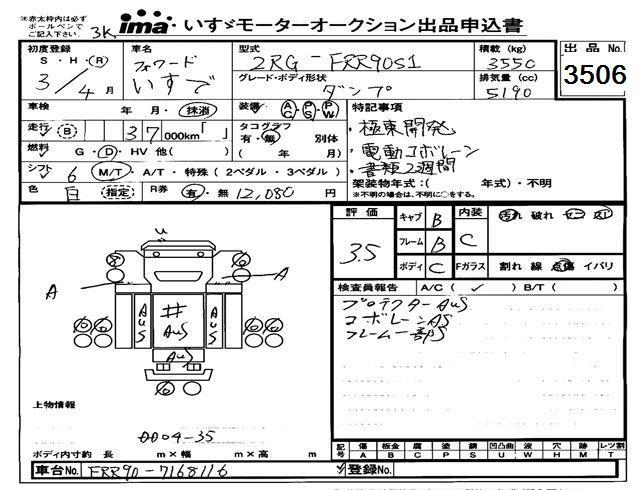 ※赤太枠内は必ず
ボールペンで
ご記入下さい。
3K
ima いすゞモーターオークション出品申込書
初度登録
S ・ H ・ (R)
3 / 4 月
車名
フォワード
いすゞ
型式
2RG - FRR90S1
グレード・ボディ形状
ダンプ
積載 (kg)
3550
排気量 (cc)
5190
出品 No
3506
車検 年 ・ 月 ・ 抹消
装備 AC PS PW
特記事項
走行 B 37 000km「 」
タコグラフ
有 ・ 無
( 年 月)
・極東開発
・電動コボレーン
・書類2週間
燃料 G ・ D ・ HV 他( )
シフト 6 M/T ・ A/T ・ 特殊 ( 2ペダル ・ 3ペダル )
色 白 指定 R券 有 ・ 無 12,080 円
架装物年式:( 年式)・不明
※不明の場合は、不明に○をする。
評価
3.5
キャブ B
フレーム B
ボディ C
内装 汚れ 破れ コゲ スレ
C
Fガラス 割れ 線 点傷 イバリ
検査員報告 A/C ( ✓ ) B/T ( )
プロテクターAuS
コボレーンAS
フレーム一部S
u
A
A
AuS
#
AuS
AuS
AuS
上物情報
0004-35
ボディ内寸約 長 m×幅 m×高 m
記号 傷 板金 腐 塗 錆 凹凸曲 波 穴 無 レツ割
A B C P S U W H M T
車台No. FRR90-7168116
登録No.